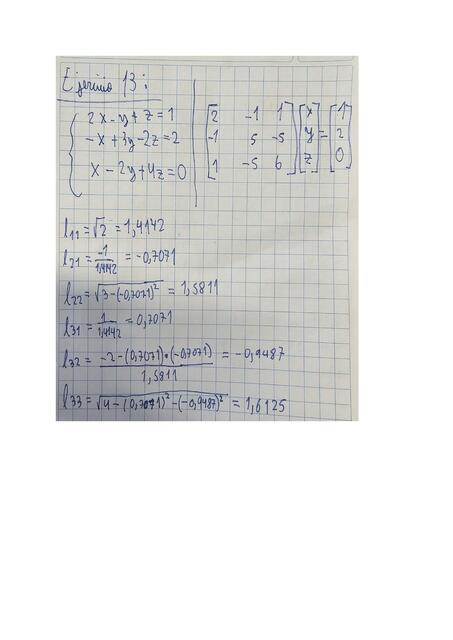 Ejercicio 13:
2x-y+z=1
-x+3y-2z=2
x-2y+4z=0
[2 -1 1] [x] [1]
[-1 5 -5] [y] = [2]
[1 -5 6] [z] [0]
l11 = √2 = 1,4142
l21 = -1/1,4142 = -0,7071
l22 = √3-(-0,7071)² = 1,5811
l31 = 1/1,4142 = 0,7071
l32 = -2-(0,7071)•(-0,7071)/1,5811 = -0,9487
l33 = √4-(0,7071)²-(-0,9487)² = 1,6125